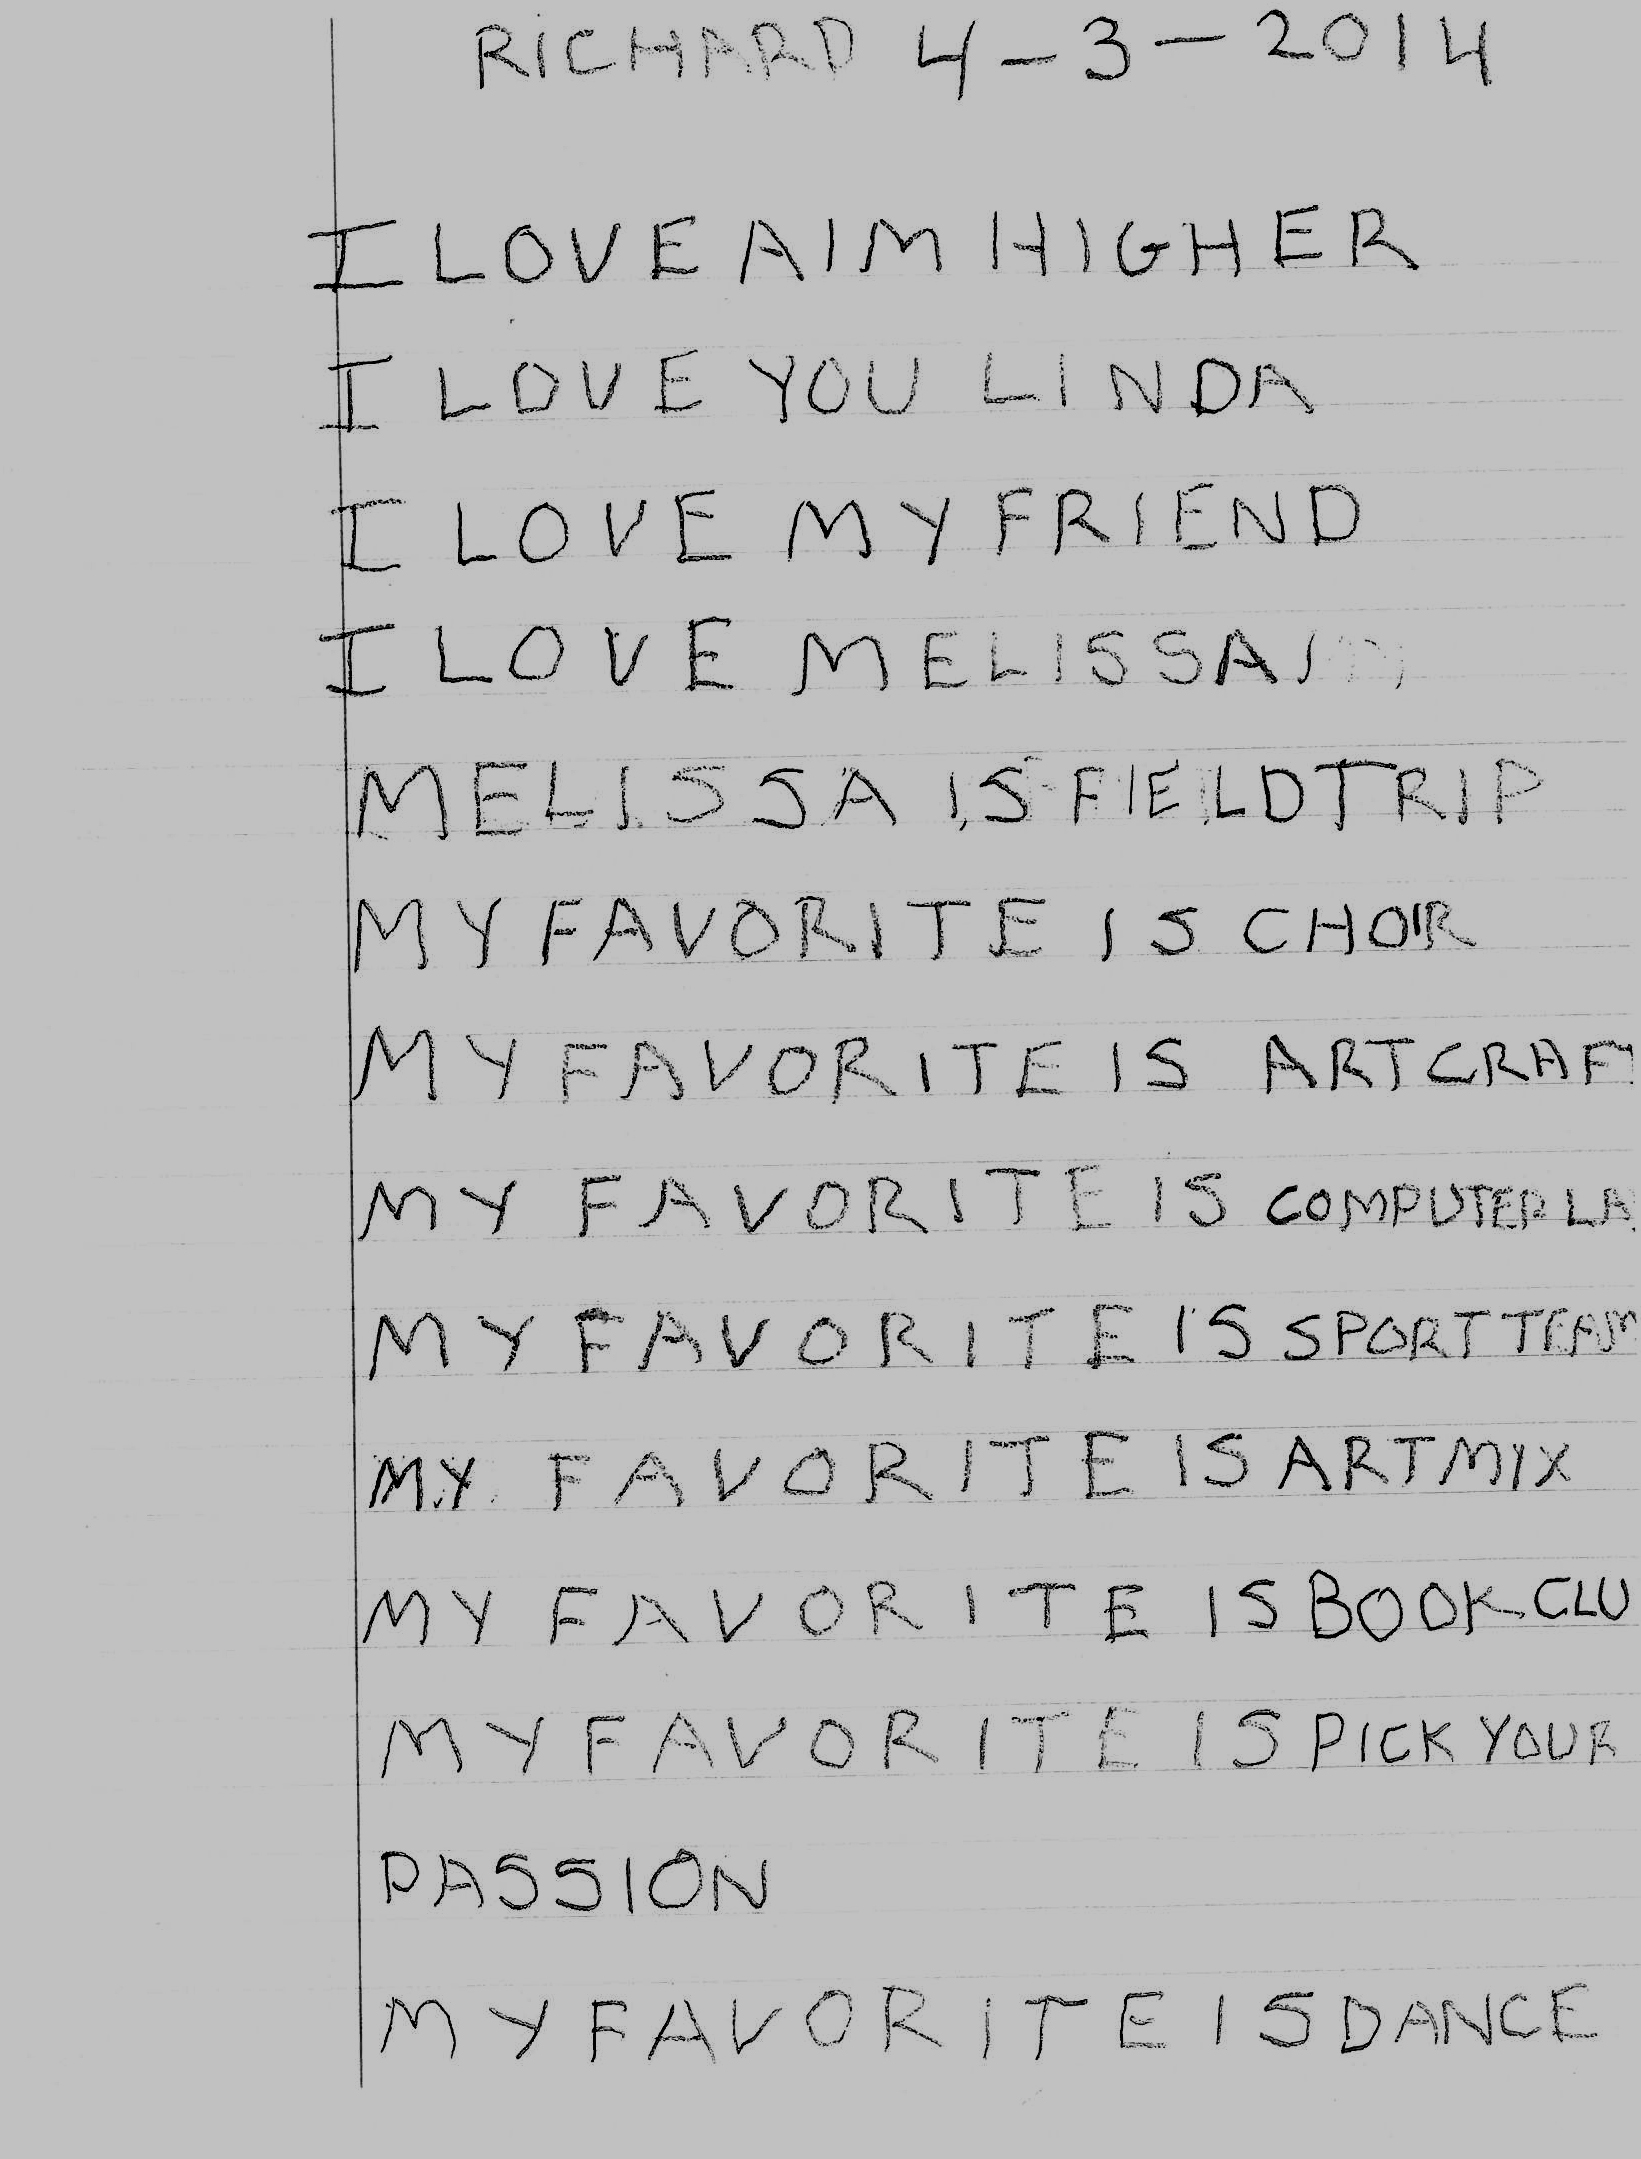 RICHARD 4-3-2014
I LOVE AIM HIGHER
I LOVE YOU LINDA
I LOVE MY FRIEND
I LOVE MELISSA
MELISSA IS FIELD TRIP
MY FAVORITE IS CHOIR
MY FAVORITE IS ART CRAFT
MY FAVORITE IS COMPUTER LA
MY FAVORITE IS SPORT TEAM
MY FAVORITE IS ART MIX
MY FAVORITE IS BOOK CLU
MY FAVORITE IS PICK YOUR
PASSION
MY FAVORITE IS DANCE